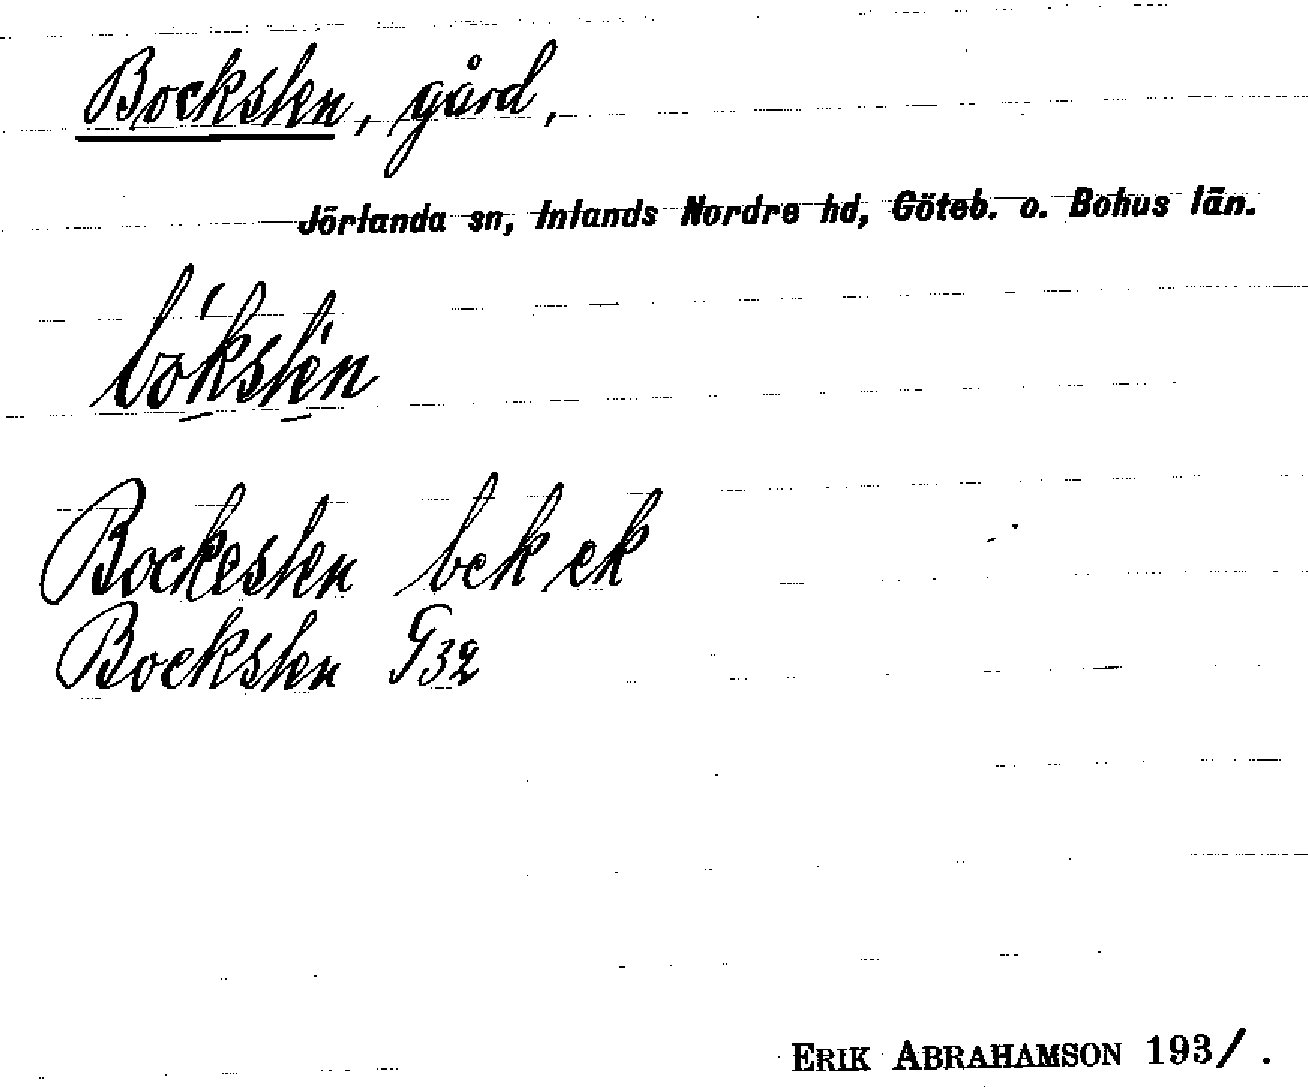 Bocksten, gård,
Jörlanda sn, Inlands Nordre hd, Göteb. o. Bohus län.
bo̱kste̱n
Bockesten bek ek
Bocksten G32
ERIK ABRAHAMSON 193/.